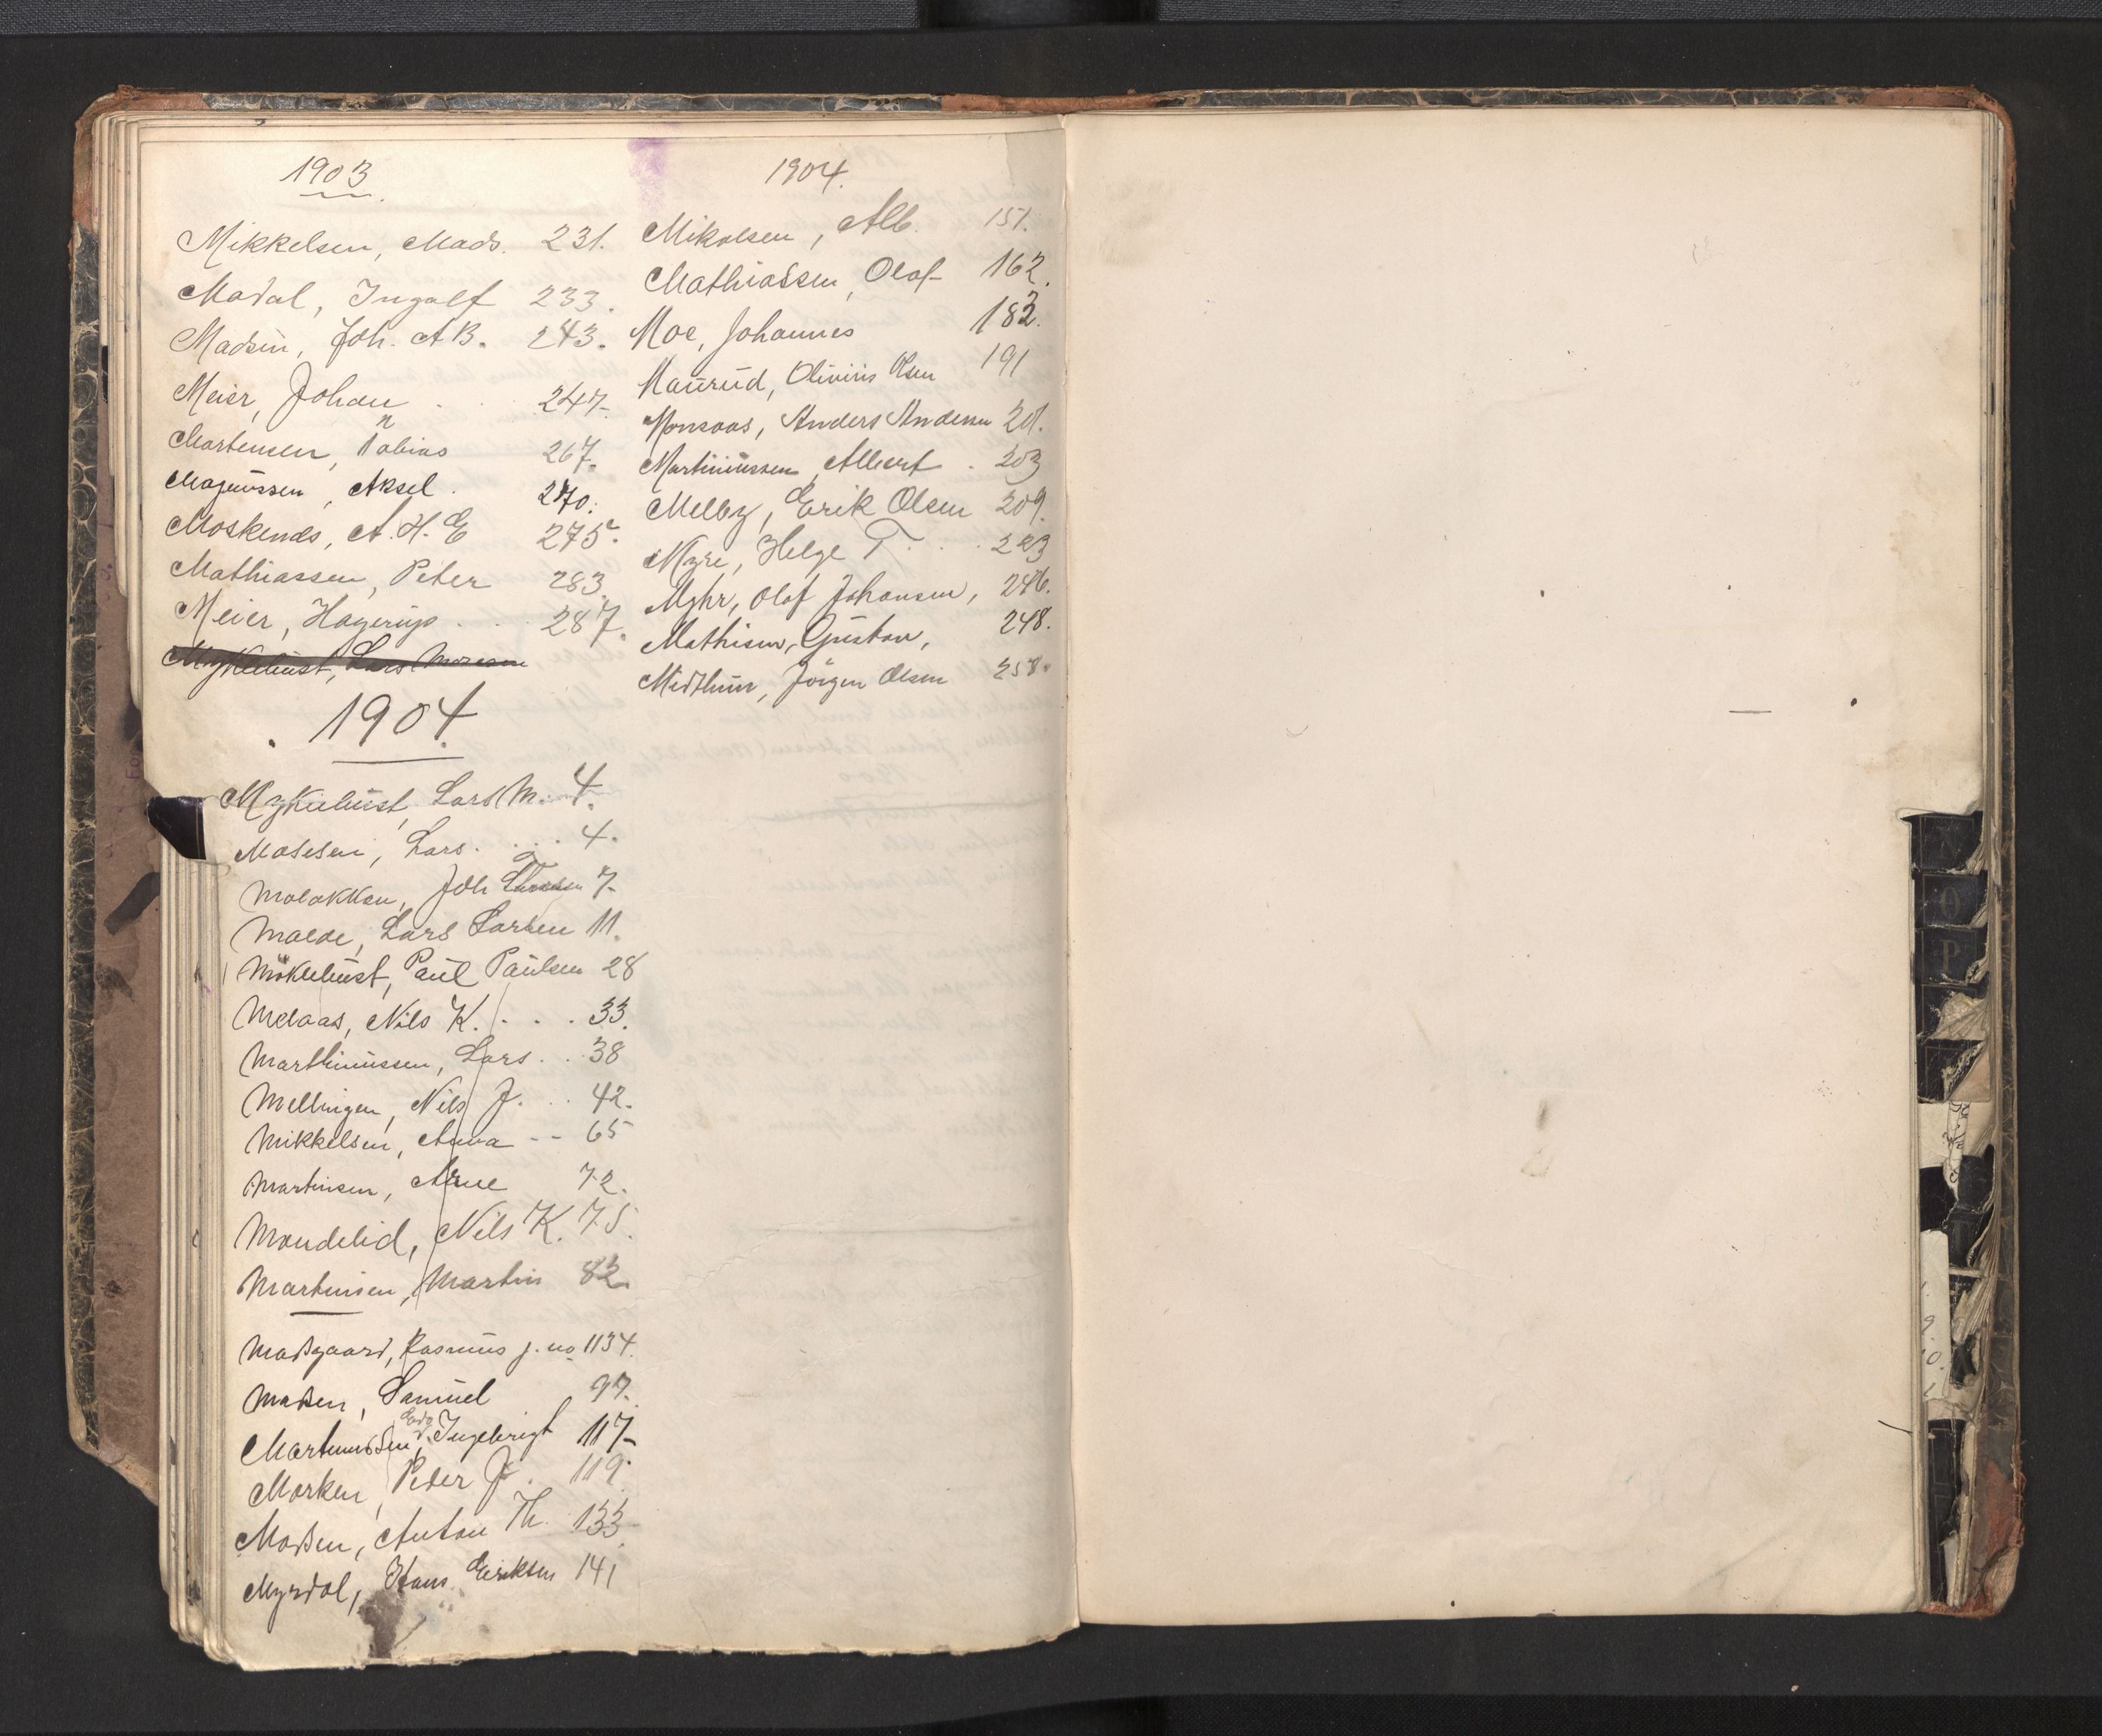 1903
Mikkelsen, Mads. 231.
Madal, Ingolf 233.
Madsen, Joh. A B. 243.
Meier, Johan 247.
Martensen, Tobias 267.
Magnussen, Aksel. 270.
Moskenes, A. H. E 275.
Mathiassen, Peter 283.
Meier, Hagerup 287.
Myklebust, Lars
1904
Myklebust, Lars M. 4.
Mosesen, Lars. 4.
Malakken, Joh 7.
Malde, Lars Larsen 11.
Möklebust, Paul Paulsen 28
Melaas, Nils K. 33.
Marthinussen, Lars. 38
Mellingen, Nils J. 42.
Mikkelsen, Anna 65
Martinsen, Arne 72.
Mondelid, Nils K. 75.
Martinsen, Martin 82.
Madsgaard, Rasmus j. no 1134.
Madsen, Samuel 97.
Martinussen, Ingebrigt 117
Morken, Peder J. 119.
Madsen, Anton Th. 133.
Myrdal, Hans Eriksen 141
1904.
Mikalsen, Alb. 151.
Mathiassen, Olaf 162.
Moe, Johannes 182.
Maurud, Oliviris Olsen 191
Monsaas, Anders Andersen 201.
Martiniussen, Albert. 203
Melby, Erik Olsen 209.
Myre, Helge T. 223
Myhr, Olaf Johansen, 246.
Mathisen, Gustav, 248.
Midthun, Jörgen Olsen 258.
N
O
P